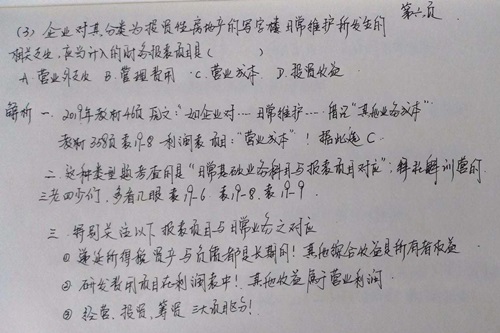 第六页
(3) 企业对其分类为投资性房地产的写字楼日常维护所发生的
相关支出,应当计入的财务报表项目是( )
A. 营业外支出 B. 管理费用 C. 营业成本 D. 投资收益
解析 一. 2019年教材46页原文:"如企业对…日常维护…借记"其他业务成本"
教材358页表19-8 利润表项目:"营业成本"!据此选C.
二. 这种类型题考查的是"日常基础业务科目与报表项目对应":科北科训营的
三老四少们,多看几眼表19-6. 表19-8. 表19-9
三. 特别关注以下报表项目与日常业务之对应
① 递延所得税资产与负债都是长期的!其他综合收益是所有者权益
② 研发费用项目在利润表中!其他收益属于营业利润.
③ 经营、投资、筹资 三大项区分!